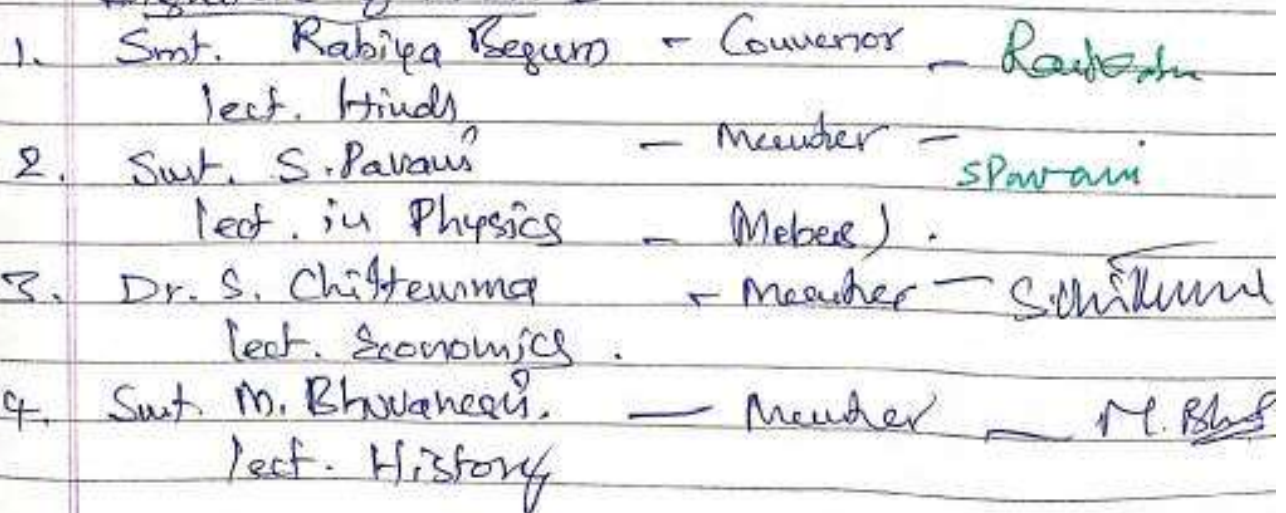 1. Smt. Rabiya Begum - Convenor -
lect. Hindi
2. Smt. S. Pavani - Member - S Pavani
lect. in Physics - Mebers) .
3. Dr. S. Chittemma - Member - S. Chittemma
lect. Economics .
4. Smt. M. Bhuvaneswari. — Member —
lect. History